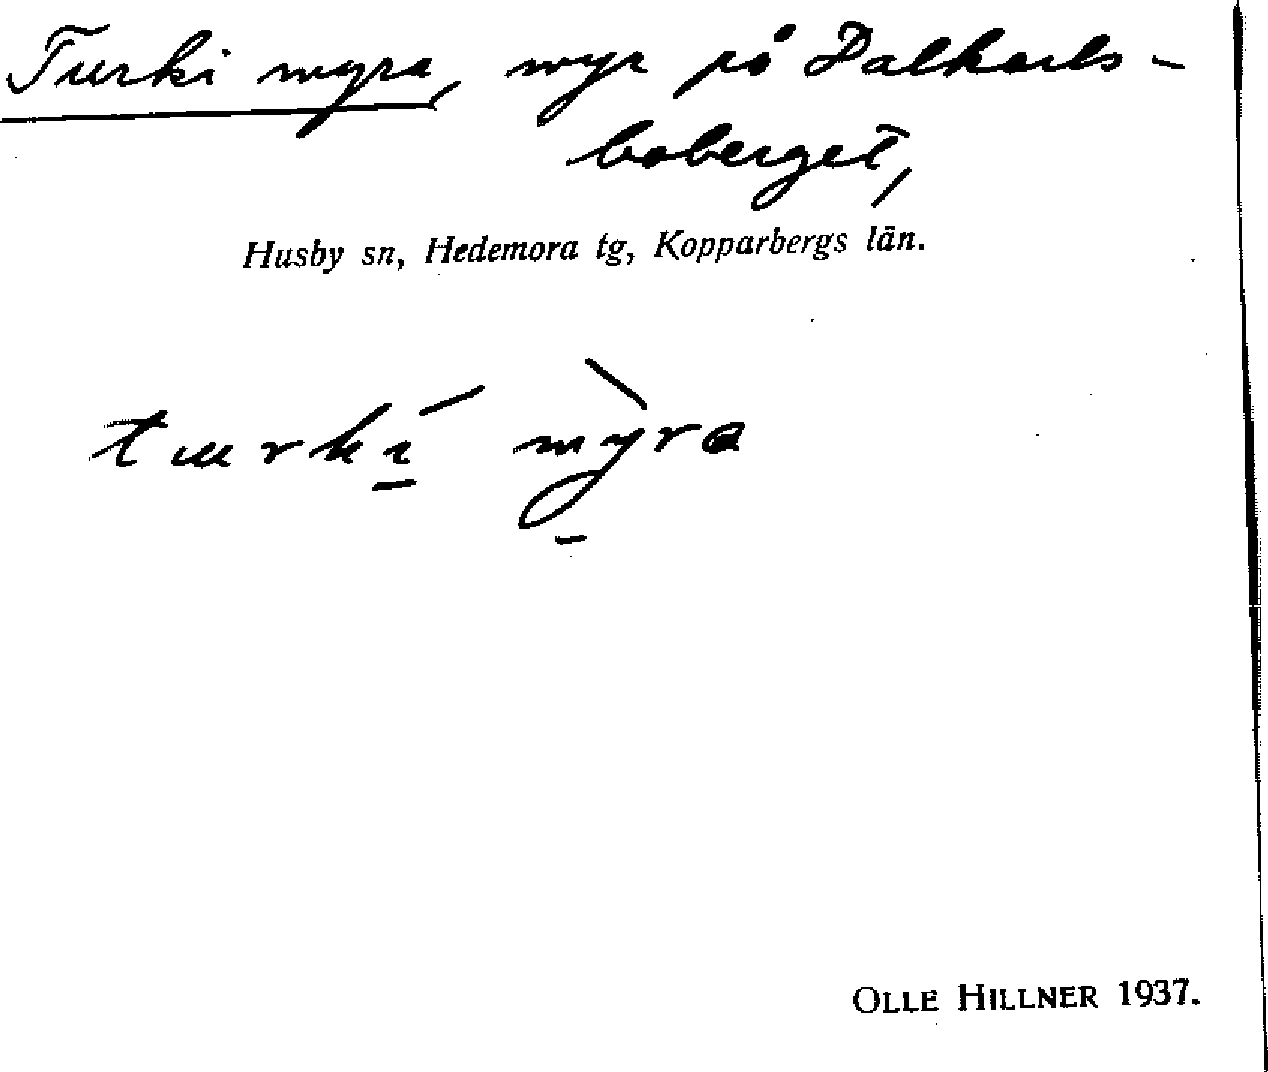 Turki myra, myr på Dalkarls-
boberget,
Husby sn, Hedemora tg, Kopparbergs län.
turki´ my̆̀ra
OLLE HILLNER 1937.